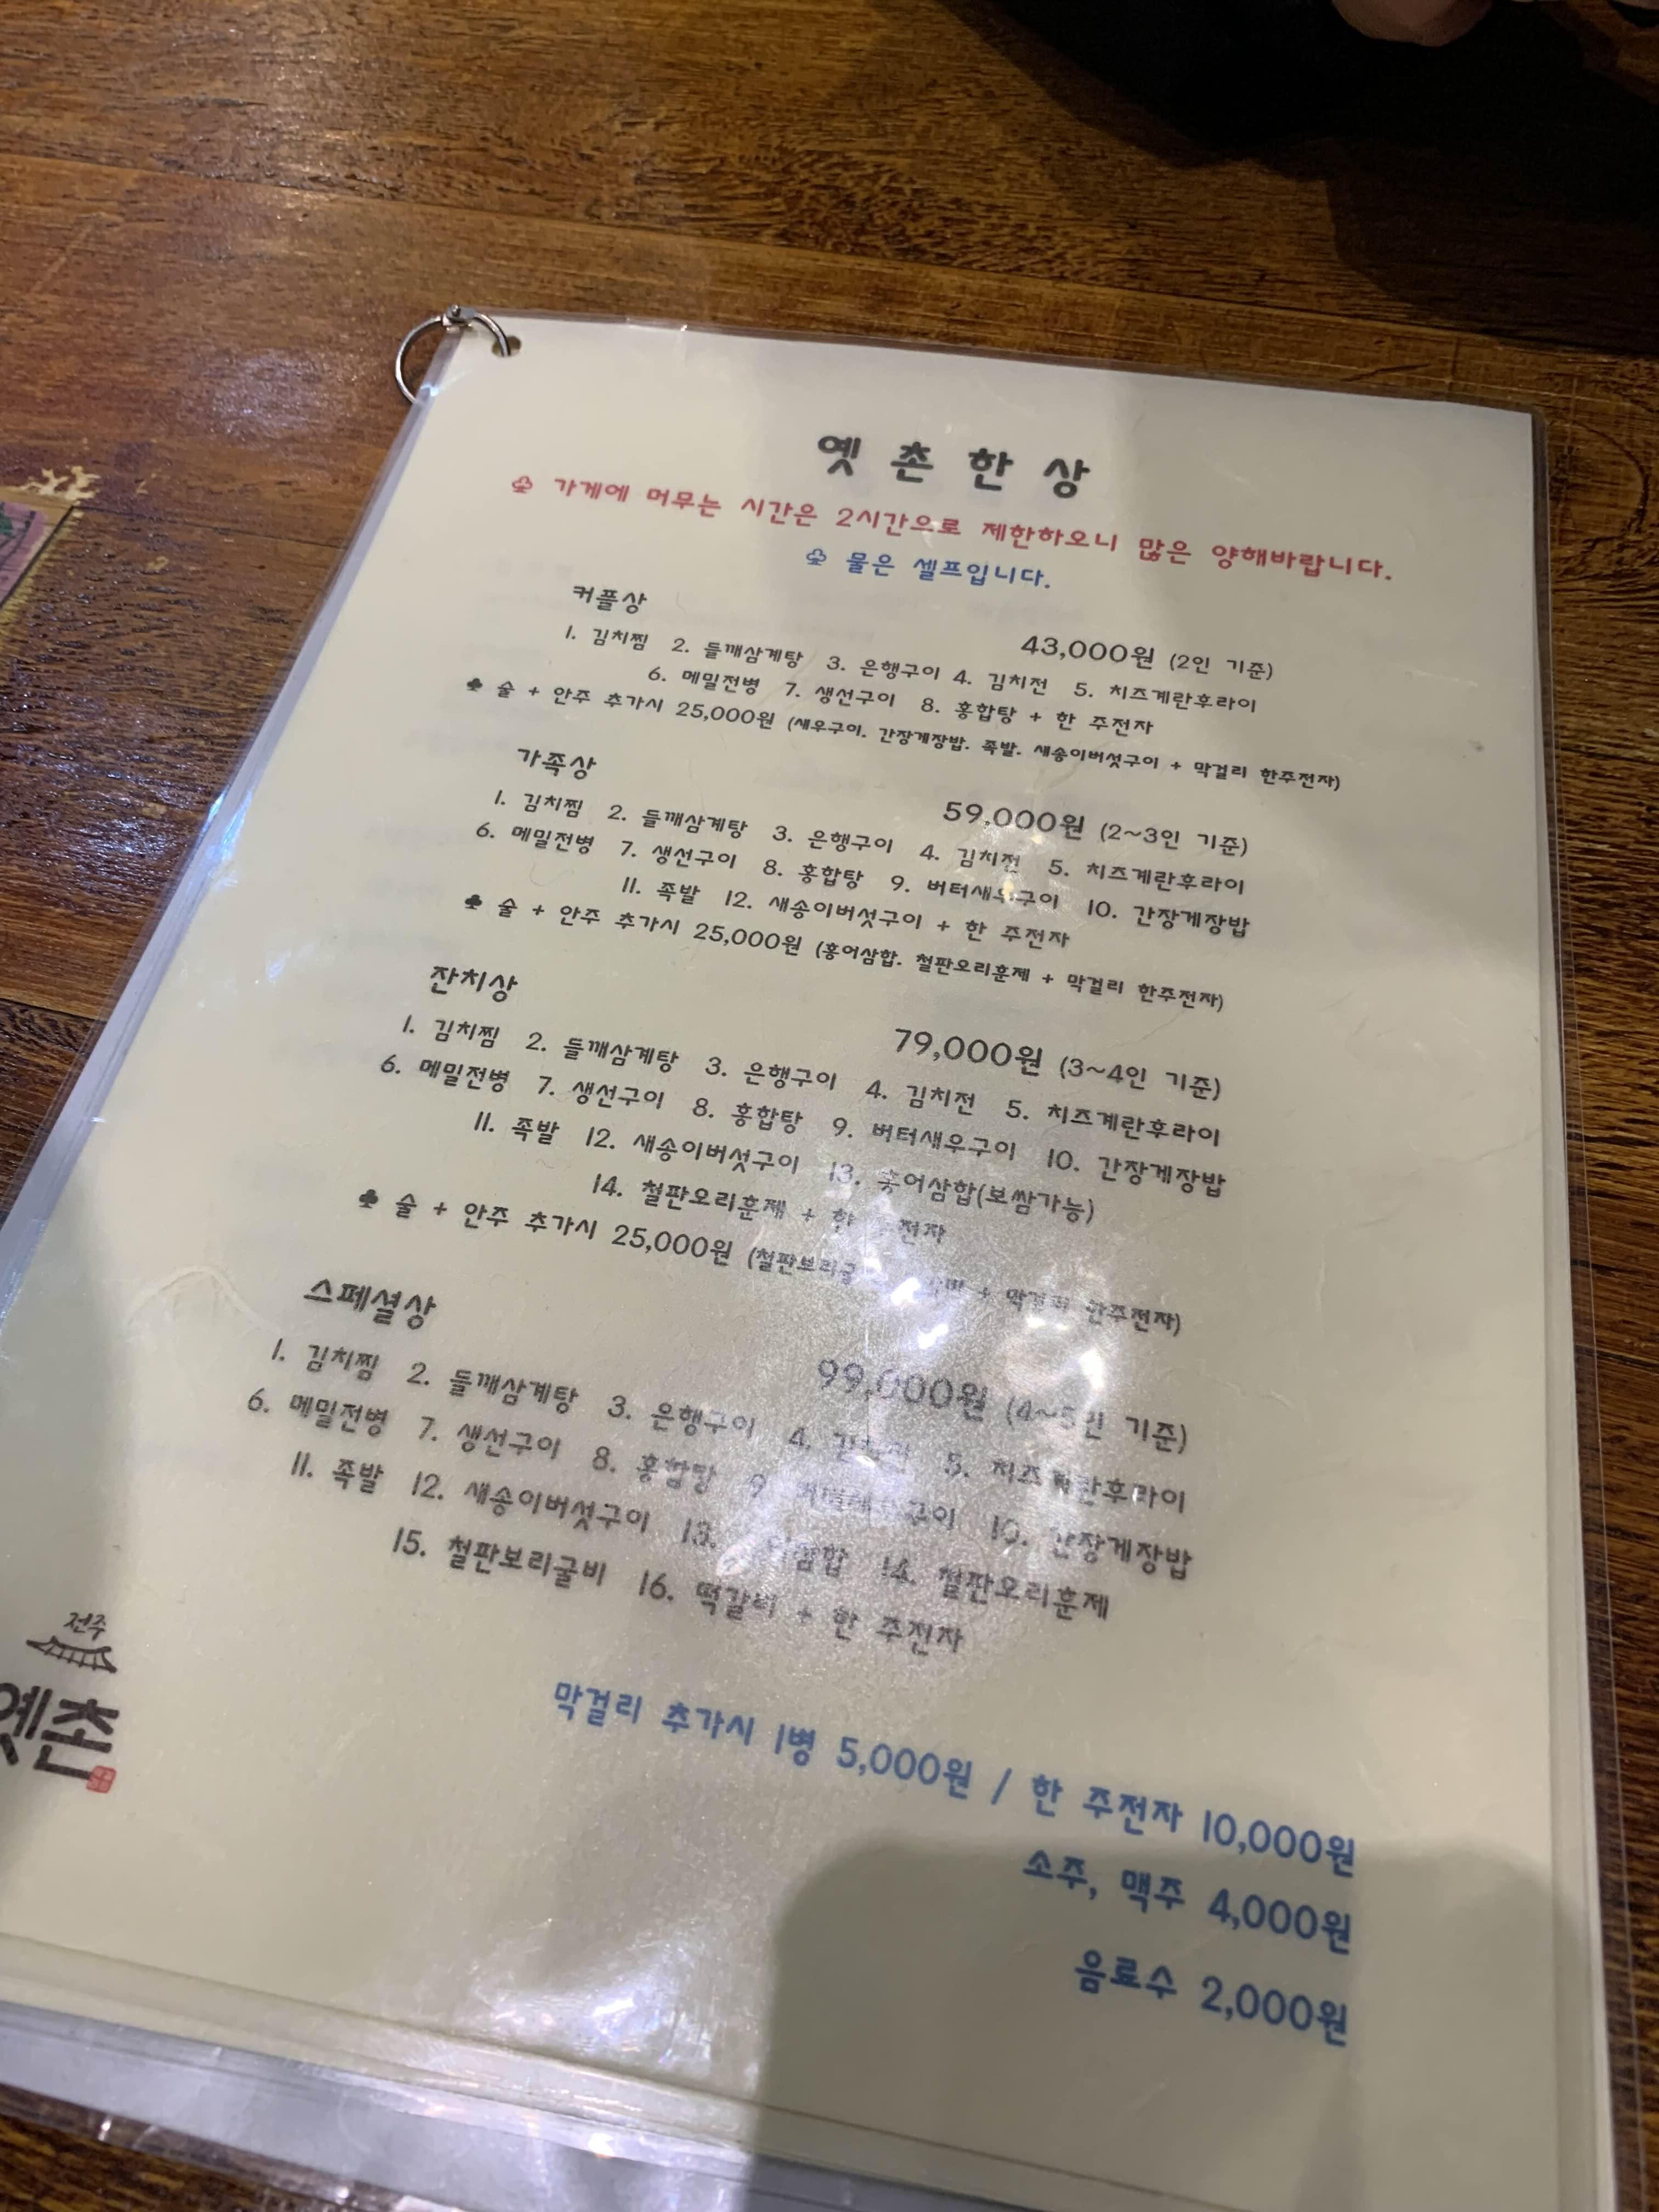 옛 촌 한 상
♧ 가게에 머무는 시간은 2시간으로 제한하오니 많은 양해바랍니다.
♧ 물은 셀프입니다.
커플상
43,000원 (2인 기준)
1. 김치찜 2. 들깨삼계탕 3. 은행구이 4. 김치전 5. 치즈계란후라이
6. 메밀전병 7. 생선구이 8. 홍합탕 + 한 주전자
♣ 술 + 안주 추가시 25,000원 (새우구이. 간장게장밥. 족발. 새송이버섯구이 + 막걸리 한주전자)
가족상
59,000원 (2~3인 기준)
1. 김치찜 2. 들깨삼계탕 3. 은행구이 4. 김치전 5. 치즈계란후라이
6. 메밀전병 7. 생선구이 8. 홍합탕 9. 버터새우구이 10. 간장게장밥
11. 족발 12. 새송이버섯구이 + 한 주전자
♣ 술 + 안주 추가시 25,000원 (홍어삼합. 철판오리훈제 + 막걸리 한주전자)
잔치상
79,000원 (3~4인 기준)
1. 김치찜 2. 들깨삼계탕 3. 은행구이 4. 김치전 5. 치즈계란후라이
6. 메밀전병 7. 생선구이 8. 홍합탕 9. 버터새우구이 10. 간장게장밥
11. 족발 12. 새송이버섯구이 13. 홍어삼합(보쌈가능)
14. 철판오리훈제 + 한 주전자
♣ 술 + 안주 추가시 25,000원 + 막걸리 한주전자)
스페셜상
99,000원 (4~5인 기준)
1. 김치찜 2. 들깨삼계탕 3. 은행구이 4. 5. 치즈계란후라이
6. 메밀전병 7. 생선구이 8. 홍합탕 9. 10. 간장게장밥
11. 족발 12. 새송이버섯구이 13. 14. 철판오리훈제
15. 철판보리굴비 16. 떡갈비 + 한 주전자
전주
옛촌
막걸리 추가시 1병 5,000원 / 한 주전자 10,000원
소주, 맥주 4,000원
음료수 2,000원